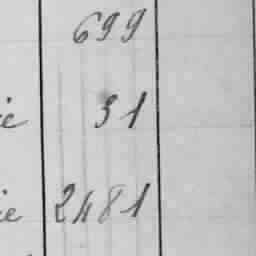 699
ie 31
ie 2481